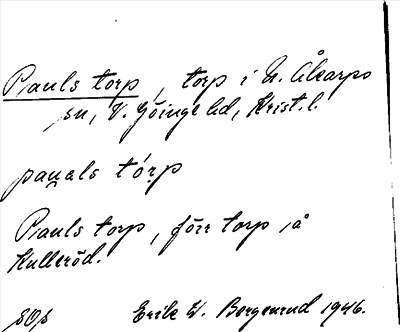 Pauls torp, torp i N. Åkarps
sn, V. Göinge hd, Krist. l.
pauals tórp
Pauls torp, förr torp på
Kulleröd.
SOp Erik W. Bergenrud 1946.